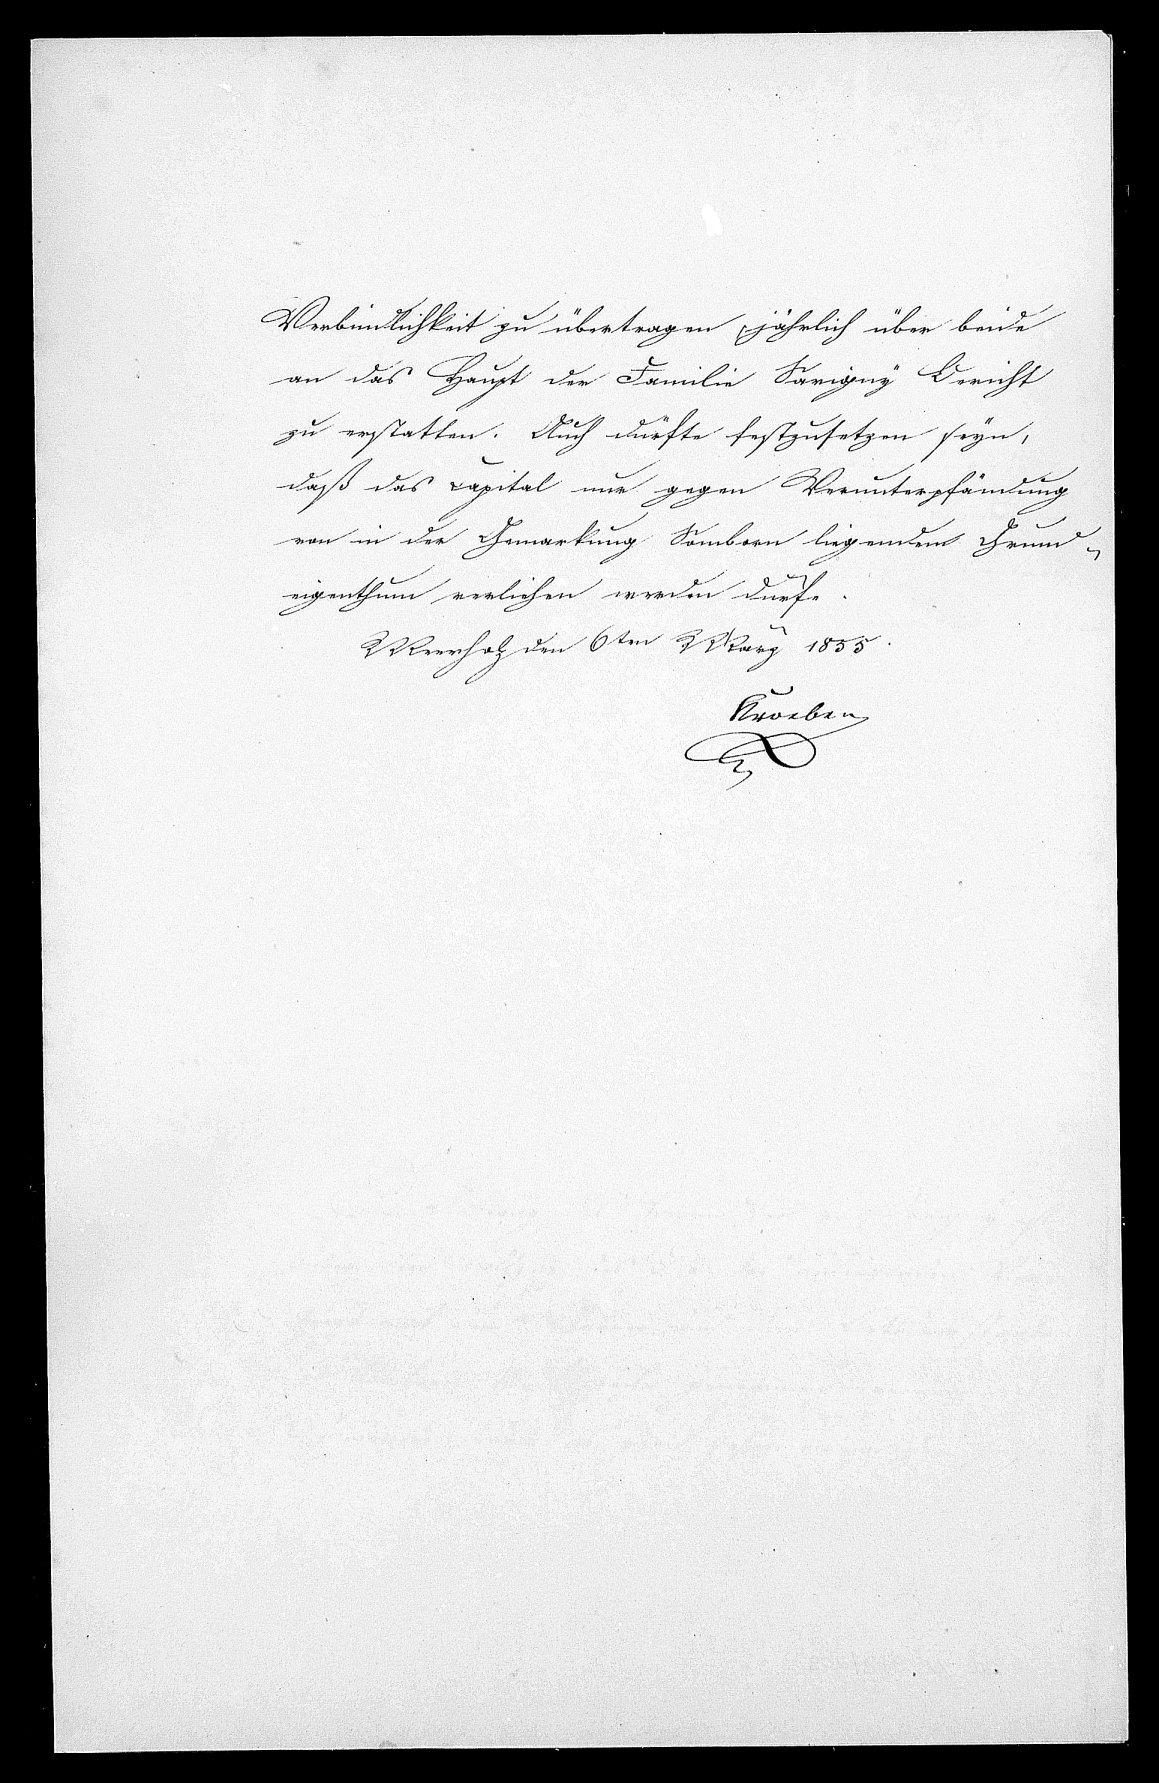 Verbindlichkeit zu übertragen, jährlich über beide
an das Haupt der Familie Savigny Bericht
zu erstatten. Auch dürfte festzusetzen seyn,
daß das Capital nur gegen Verunterpfändung
von in der Gemarkung Somborn liegendem Grund-
eigenthum verliehen werden dürfe.
Meerholz den 6ten März 1855.
Kroeber